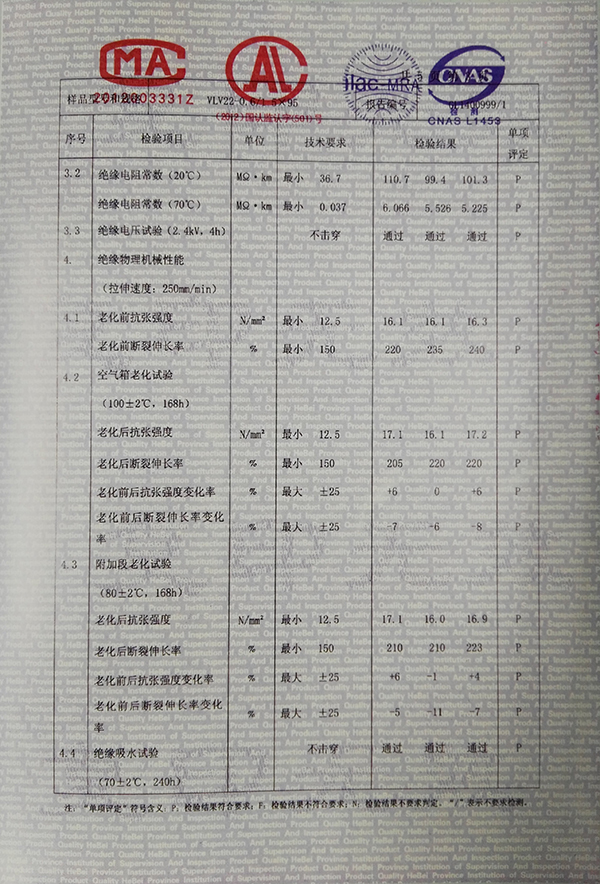 MA
AL
ilac-MRA
CNAS
2012003331Z
VLV22-0.6/1
(2012)国认监认字(501)号
报告编号
CNAS L1453
序号 检验项目 单位 技术要求 检验结果 单项评定
3.2 绝缘电阻常数(20℃) MΩ·km 最小 36.7 110.7 99.4 101.3 P
绝缘电阻常数(70℃) MΩ·km 最小 0.037 6.066 5.526 5.225 P
3.3 绝缘电压试验(2.4kV, 4h) 不击穿 通过 通过 通过 P
4. 绝缘物理机械性能
(拉伸速度: 250mm/min)
4.1 老化前抗张强度 N/mm² 最小 12.5 16.1 16.1 16.3 P
老化前断裂伸长率 % 最小 150 220 235 240 P
4.2 空气箱老化试验
(100±2℃, 168h)
老化后抗张强度 N/mm² 最小 12.5 17.1 16.1 17.2 P
老化后断裂伸长率 % 最小 150 205 220 220 P
老化前后抗张强度变化率 % 最大 ±25 +6 0 +6 P
老化前后断裂伸长率变化 % 最大 ±25 -7 -6 -8 P
率
4.3 附加段老化试验
(80±2℃, 168h)
老化后抗张强度 N/mm² 最小 12.5 17.1 16.0 16.9 P
老化后断裂伸长率 % 最小 150 210 210 223 P
老化前后抗张强度变化率 % 最大 ±25 +6 -1 +4 P
老化前后断裂伸长率变化 % 最大 ±25 -5 -11 -7 P
率
4.4 绝缘吸水试验 不击穿 通过 通过 通过 P
(70±2℃, 240h)
注: “单项评定”符号含义, P: 检验结果符合要求; F: 检验结果不符合要求; N: 检验结果不要求判定, “/”表示不要求检测.